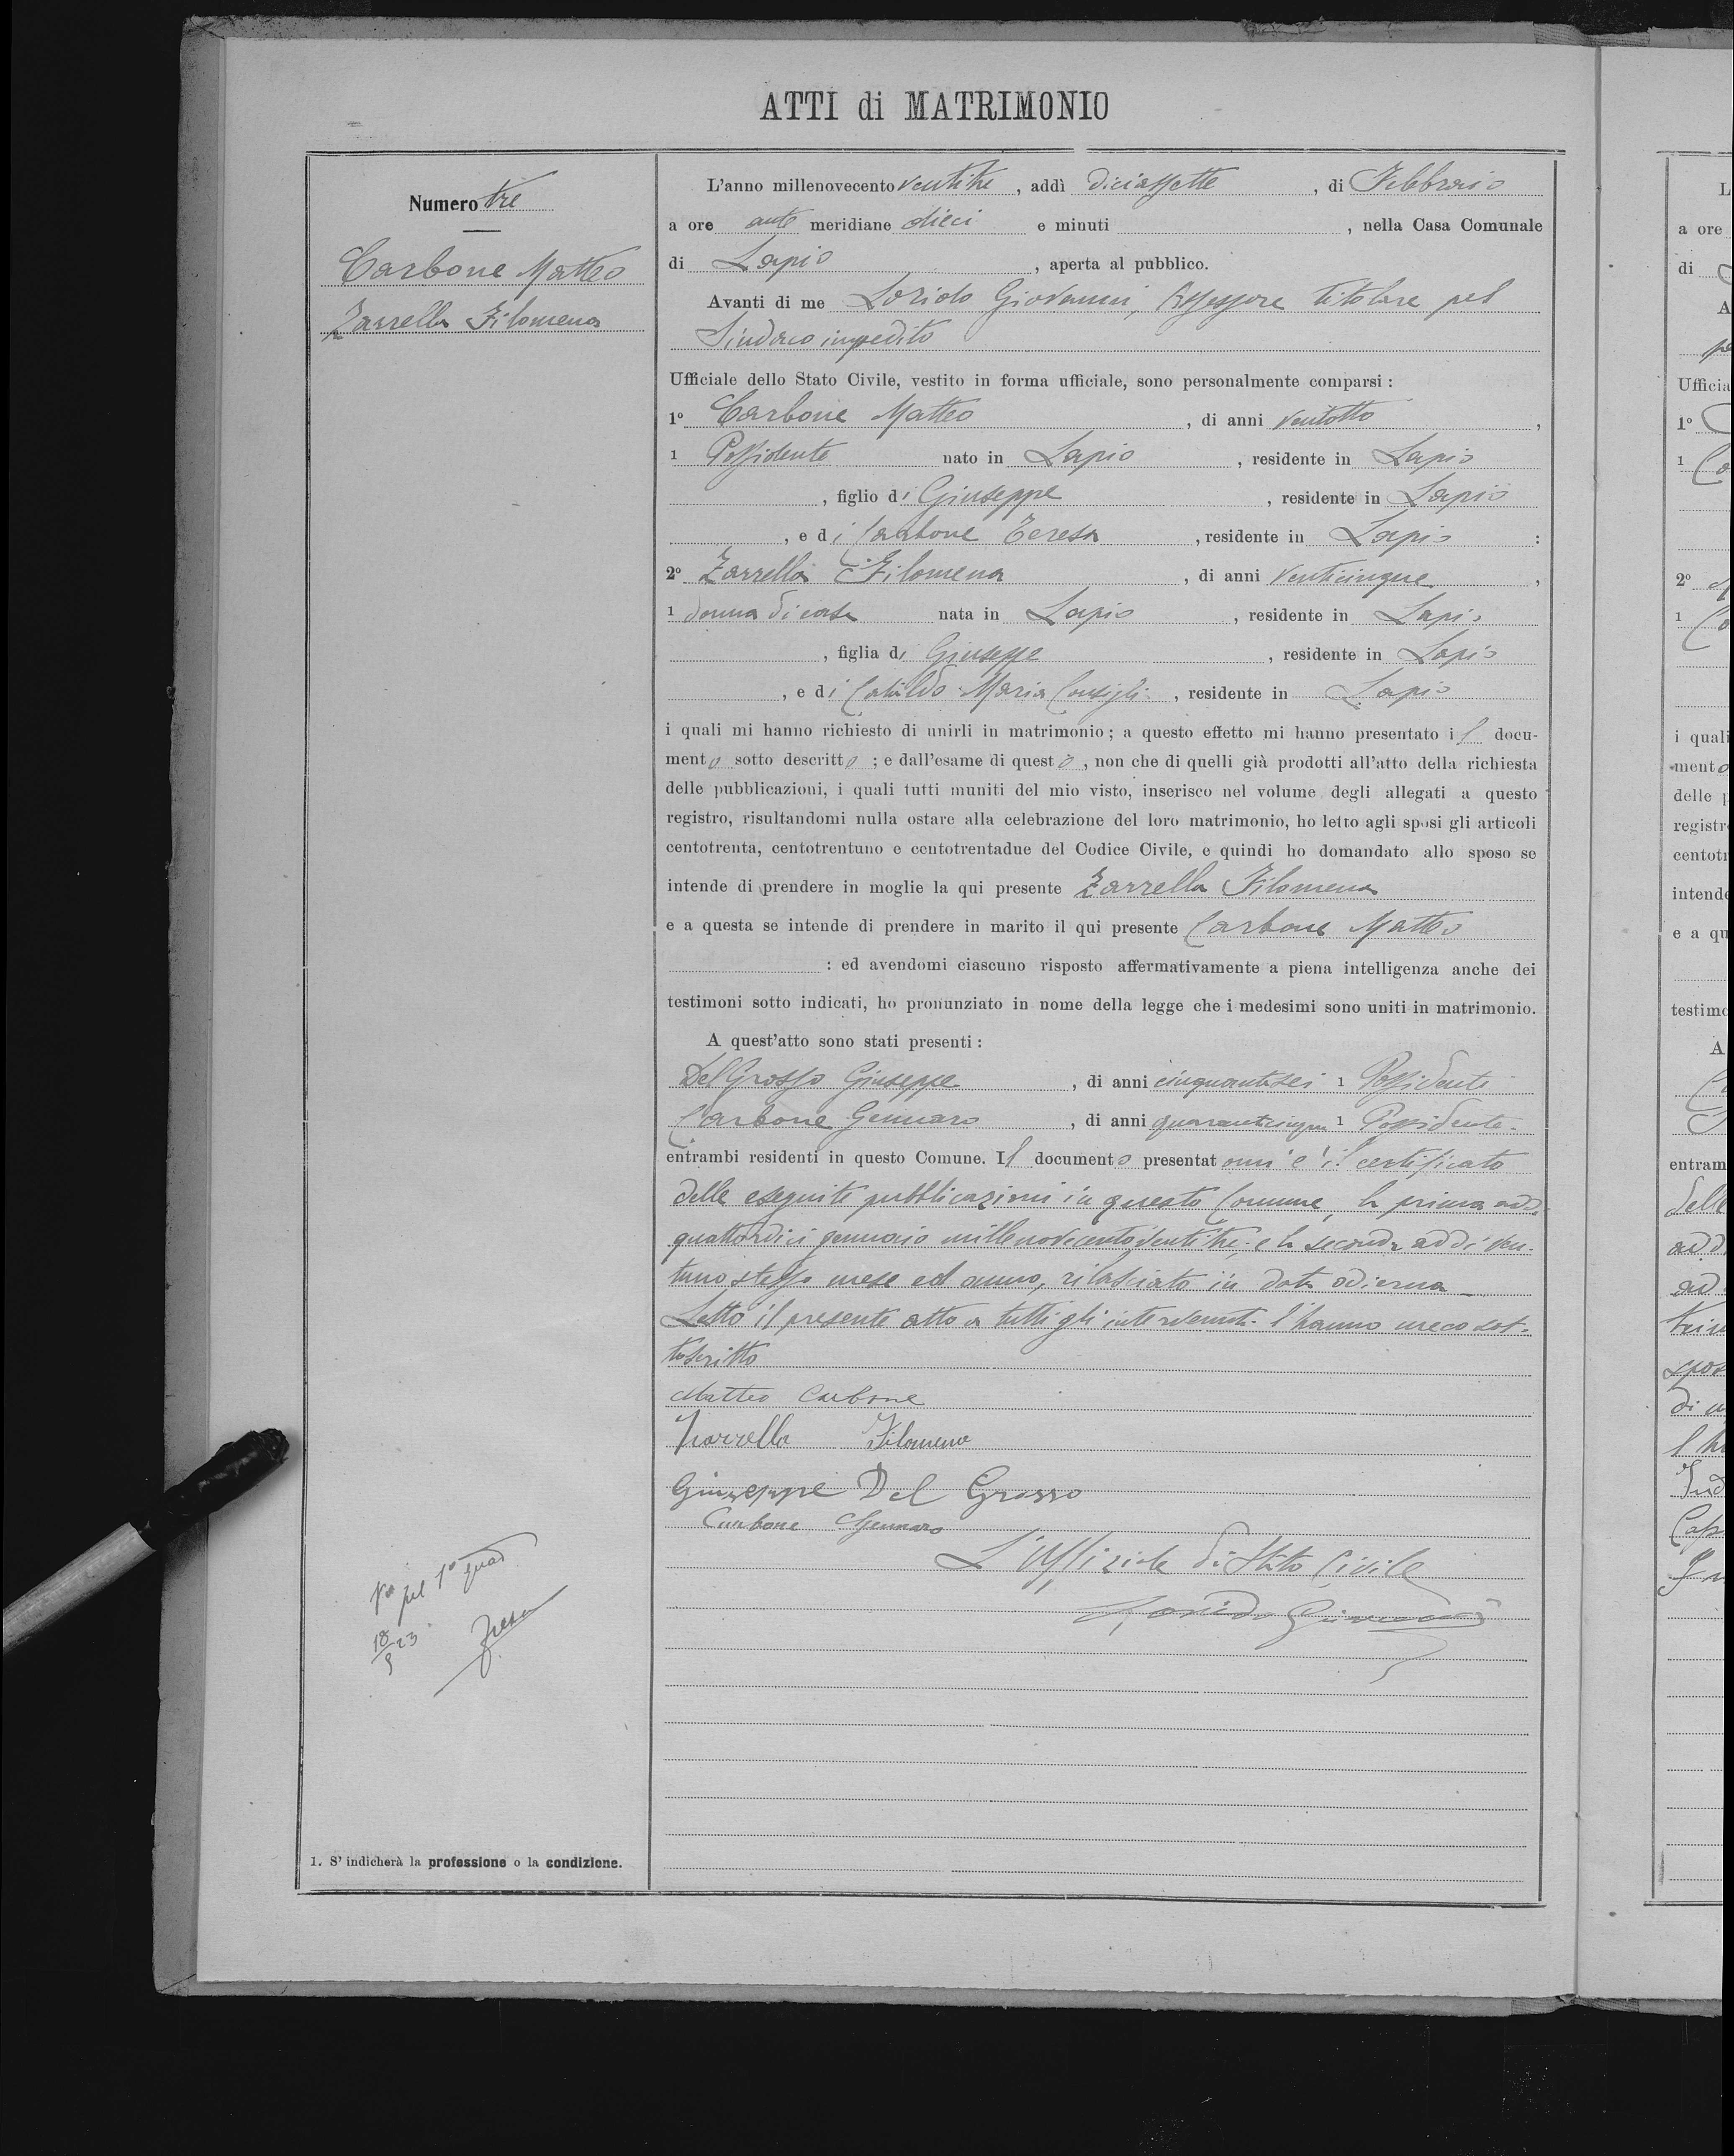 ATTI di MATRIMONIO
Numero tre
Carbone Matteo
Zarrella Filomena
L'anno millenovecento ventitre, addì diciassette, di Febbraio
a ore ante meridiane dieci e minuti , nella Casa Comunale
di Lapio, aperta al pubblico.
Avanti di me Loriolo Giovanni, Assessore titolare pel
Sindaco impedito
Ufficiale dello Stato Civile, vestito in forma ufficiale, sono personalmente comparsi :
1º Carbone Matteo, di anni ventotto,
1 Possidente nato in Lapio, residente in Lapio
, figlio di Giuseppe, residente in Lapio
, e di Carbone Teresa, residente in Lapio :
2º Zarrella Filomena, di anni venticinque,
1 donna di casa nata in Lapio, residente in Lapio
, figlia di Giuseppe, residente in Lapio
, e di Cataldo Maria Consiglia, residente in Lapio
i quali mi hanno richiesto di unirli in matrimonio ; a questo effetto mi hanno presentato il docu-
mento sotto descritto ; e dall'esame di questo, non che di quelli già prodotti all'atto della richiesta
delle pubblicazioni, i quali tutti muniti del mio visto, inserisco nel volume degli allegati a questo
registro, risultandomi nulla ostare alla celebrazione del loro matrimonio, ho letto agli sposi gli articoli
centotrenta, centotrentuno e centotrentadue del Codice Civile, e quindi ho domandato allo sposo se
intende di prendere in moglie la qui presente Zarrella Filomena
e a questa se intende di prendere in marito il qui presente Carbone Matteo
: ed avendomi ciascuno risposto affermativamente a piena intelligenza anche dei
testimoni sotto indicati, ho pronunziato in nome della legge che i medesimi sono uniti in matrimonio.
A quest'atto sono stati presenti :
Del Grosso Giuseppe, di anni cinquantasei 1 Possidente
Carbone Gennaro, di anni quarantacinque 1 Possidente
entrambi residenti in questo Comune. Il documento presentatomi è il certificato
delle eseguite pubblicazioni in questo Comune, la prima addì
quattordici gennaio millenovecentoventitre e la seconda addì ven-
tuno stesso mese ed anno, rilasciato in data odierna
Letto il presente atto a tutti gli intervenuti l'hanno meco sot-
toscritto
Matteo Carbone
Zarrella Filomena
Giuseppe Del Grosso
Carbone Gennaro
L'Uffiziale di Stato Civile
Giovanni
Vº pel 1º quad
18/5 23
1. S' indicherà la professione o la condizione.